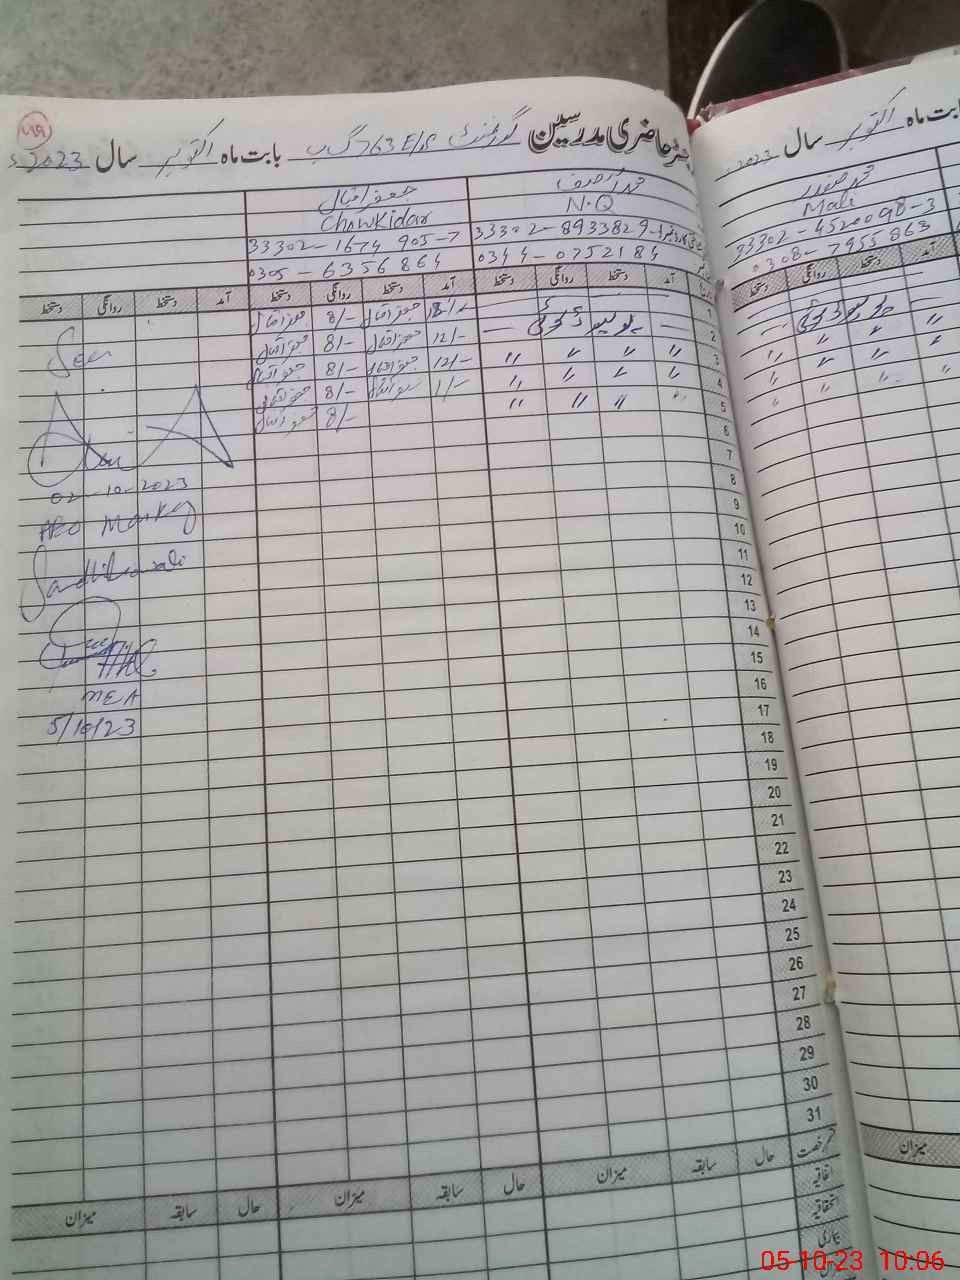 رجسٹر حاضری مدرسین گورنمنٹ 763 E/S گ ب بابت ماہ اکتوبر سال 2023ء
جعفر اقبال
Chowkidar N.Q
33302-1674905-7 33302-8933829-1
0305-6356864 0344-0752184
آمد دستخط روانگی دستخط آمد دستخط روانگی دستخط آمد دستخط روانگی دستخط
1 جعفر اقبال 8/- جعفر اقبال
2 پولیو ڈیوٹی 12/- جعفر اقبال 8/- جعفر اقبال
3 〃 〃 〃 〃 12/- جعفر اقبال 8/- جعفر اقبال
4 〃 〃 〃 〃 1/- جعفر اقبال 8/- جعفر اقبال
5 〃 〃 〃 8/- جعفر اقبال
6
7
8
9
10
11
12
13
14
15
16
17
18
19
20
21
22
23
24
25
26
27
28
29
30
31
Seen
02-10-2023
AEO Markaz
Sandhilianwali
MEA
5/10/23
حال سابقہ میزان حال سابقہ میزان حال سابقہ میزان
اتفاقیہ
استحقاقیہ
بیماری
بابت ماہ اکتوبر سال 2023
محمد صفدر
Mali
33302-4520098-3
0308-7955863
آمد دستخط روانگی دستخط
پولیو ڈیوٹی
〃 〃 〃 〃
〃 〃 〃 〃
〃 〃 〃 〃
میزان
05-10-23 10:06